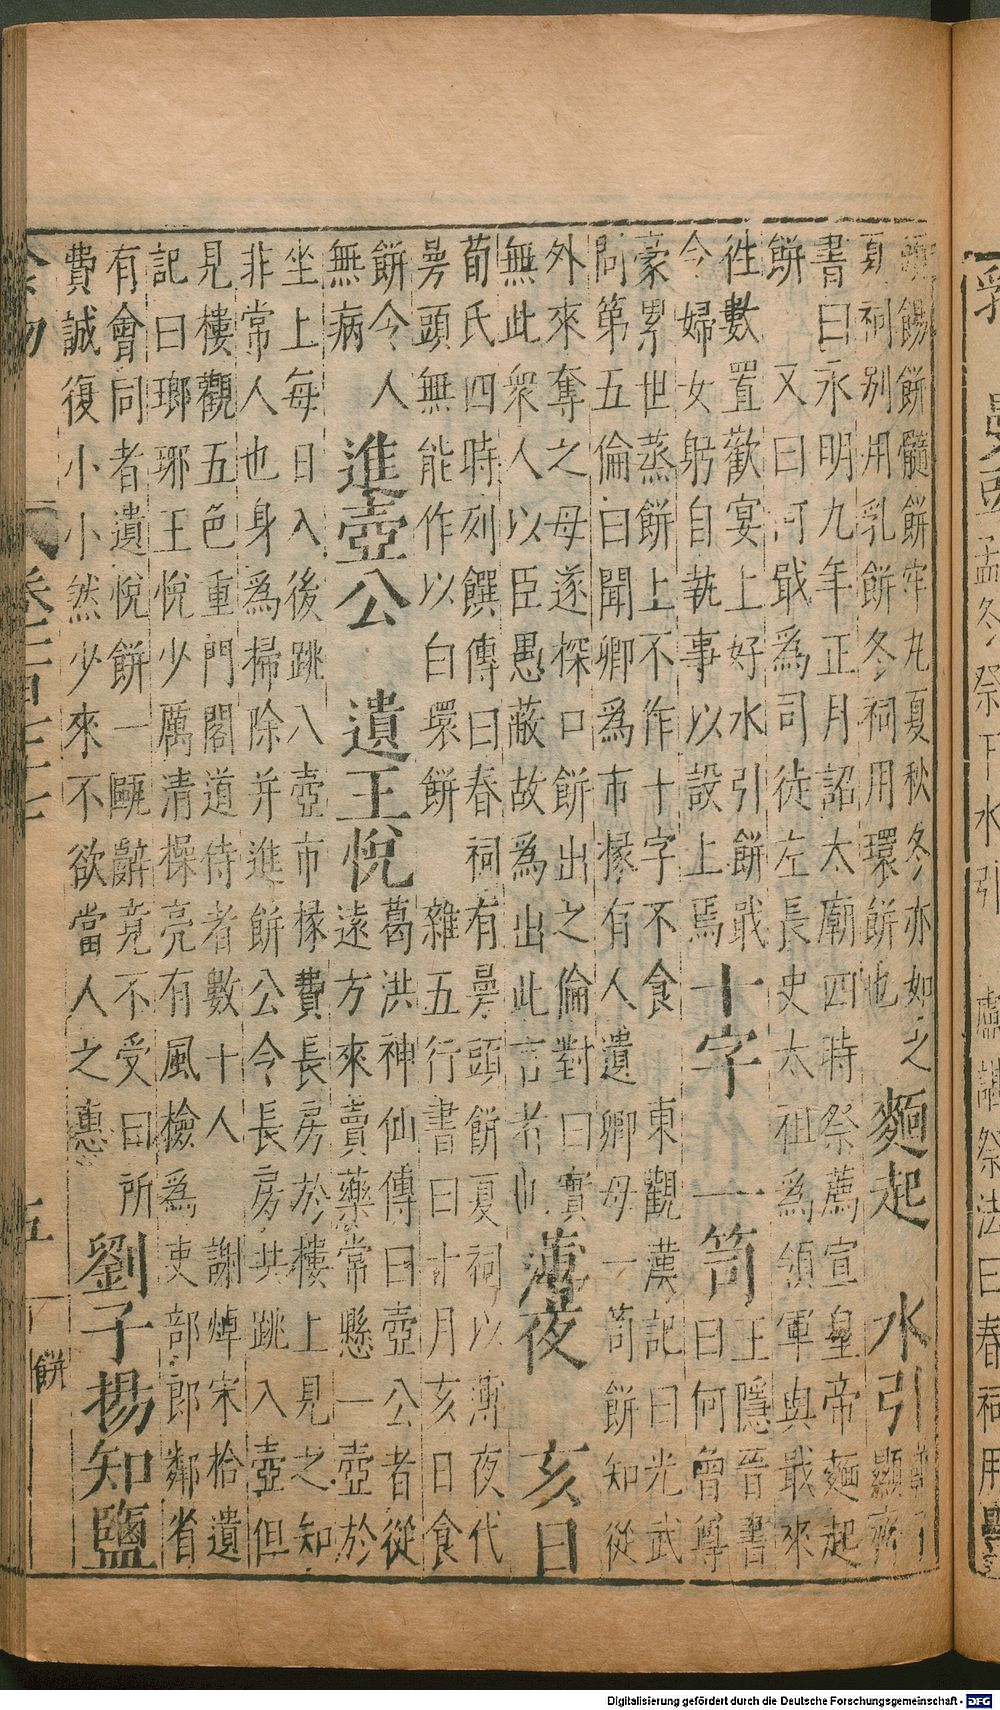 乳 㬅頭 孟冬祭下水引 盧諶祭法曰春祠用曼
頭餳餅髓餅牢丸夏秋冬亦如之
夏祠别用乳餅冬祠用環餅也
麵起 水引
蕭子
顯齊
書曰永明九年正月詔太廟四時祭薦宣皇帝麵起
餅 又曰何戢爲司徒左長史太祖爲領軍與戢來
徃數置歡宴上好水引餅戢
今婦女躬自執事以設上焉
十字 一笥
王隱晉書
曰何曾尊
豪累世蒸餅上不作十字不食 東觀漢記曰光武
問第五倫曰聞卿爲市掾有人遺卿母一笥餅知從
外來奪之母遂探口餅出之倫對曰實
無此衆人以臣愚蔽故爲出此言者也
薄夜 亥日
荀氏四時列饌傳曰春祠有曼頭餅夏祠以薄夜代
曼頭無能作以白環餅 雜五行書曰十月亥日食
餅令人
無病
進壺公 遺王悅
葛洪神仙傳曰壺公者從
遠方來賣藥常懸一壺於
坐上每日入後跳入壺市掾費長房於樓上見之知
非常人也身爲掃除并進餅公令長房共跳入壺但
見樓觀五色重門閣道侍者數十人 謝綽宋拾遺
記曰瑯琊王悅少厲清操亮有風檢爲吏部郎鄰省
有會同者遺悅餅一甌辭竟不受曰所
費誠復小小然少來不欲當人之惠
劉子揚知鹽
食物 卷二百七十七 五 餅
Digitalisierung gefördert durch die Deutsche Forschungsgemeinschaft - DFG